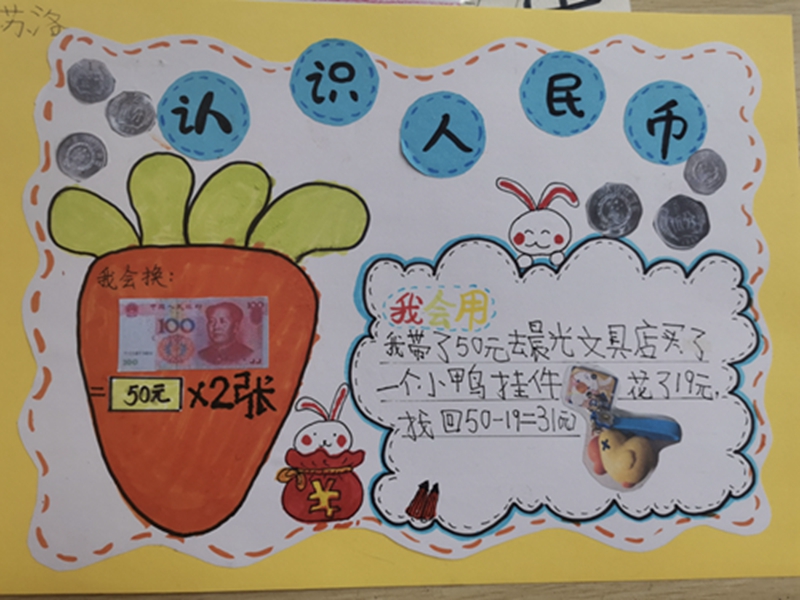 苏洛
认识人民币
我会换:
中国人民银行
100
100
100
=50元×2张
我会用
我带了50元去晨光文具店买了
一个小鸭挂件 花了19元,
找回50-19=31元